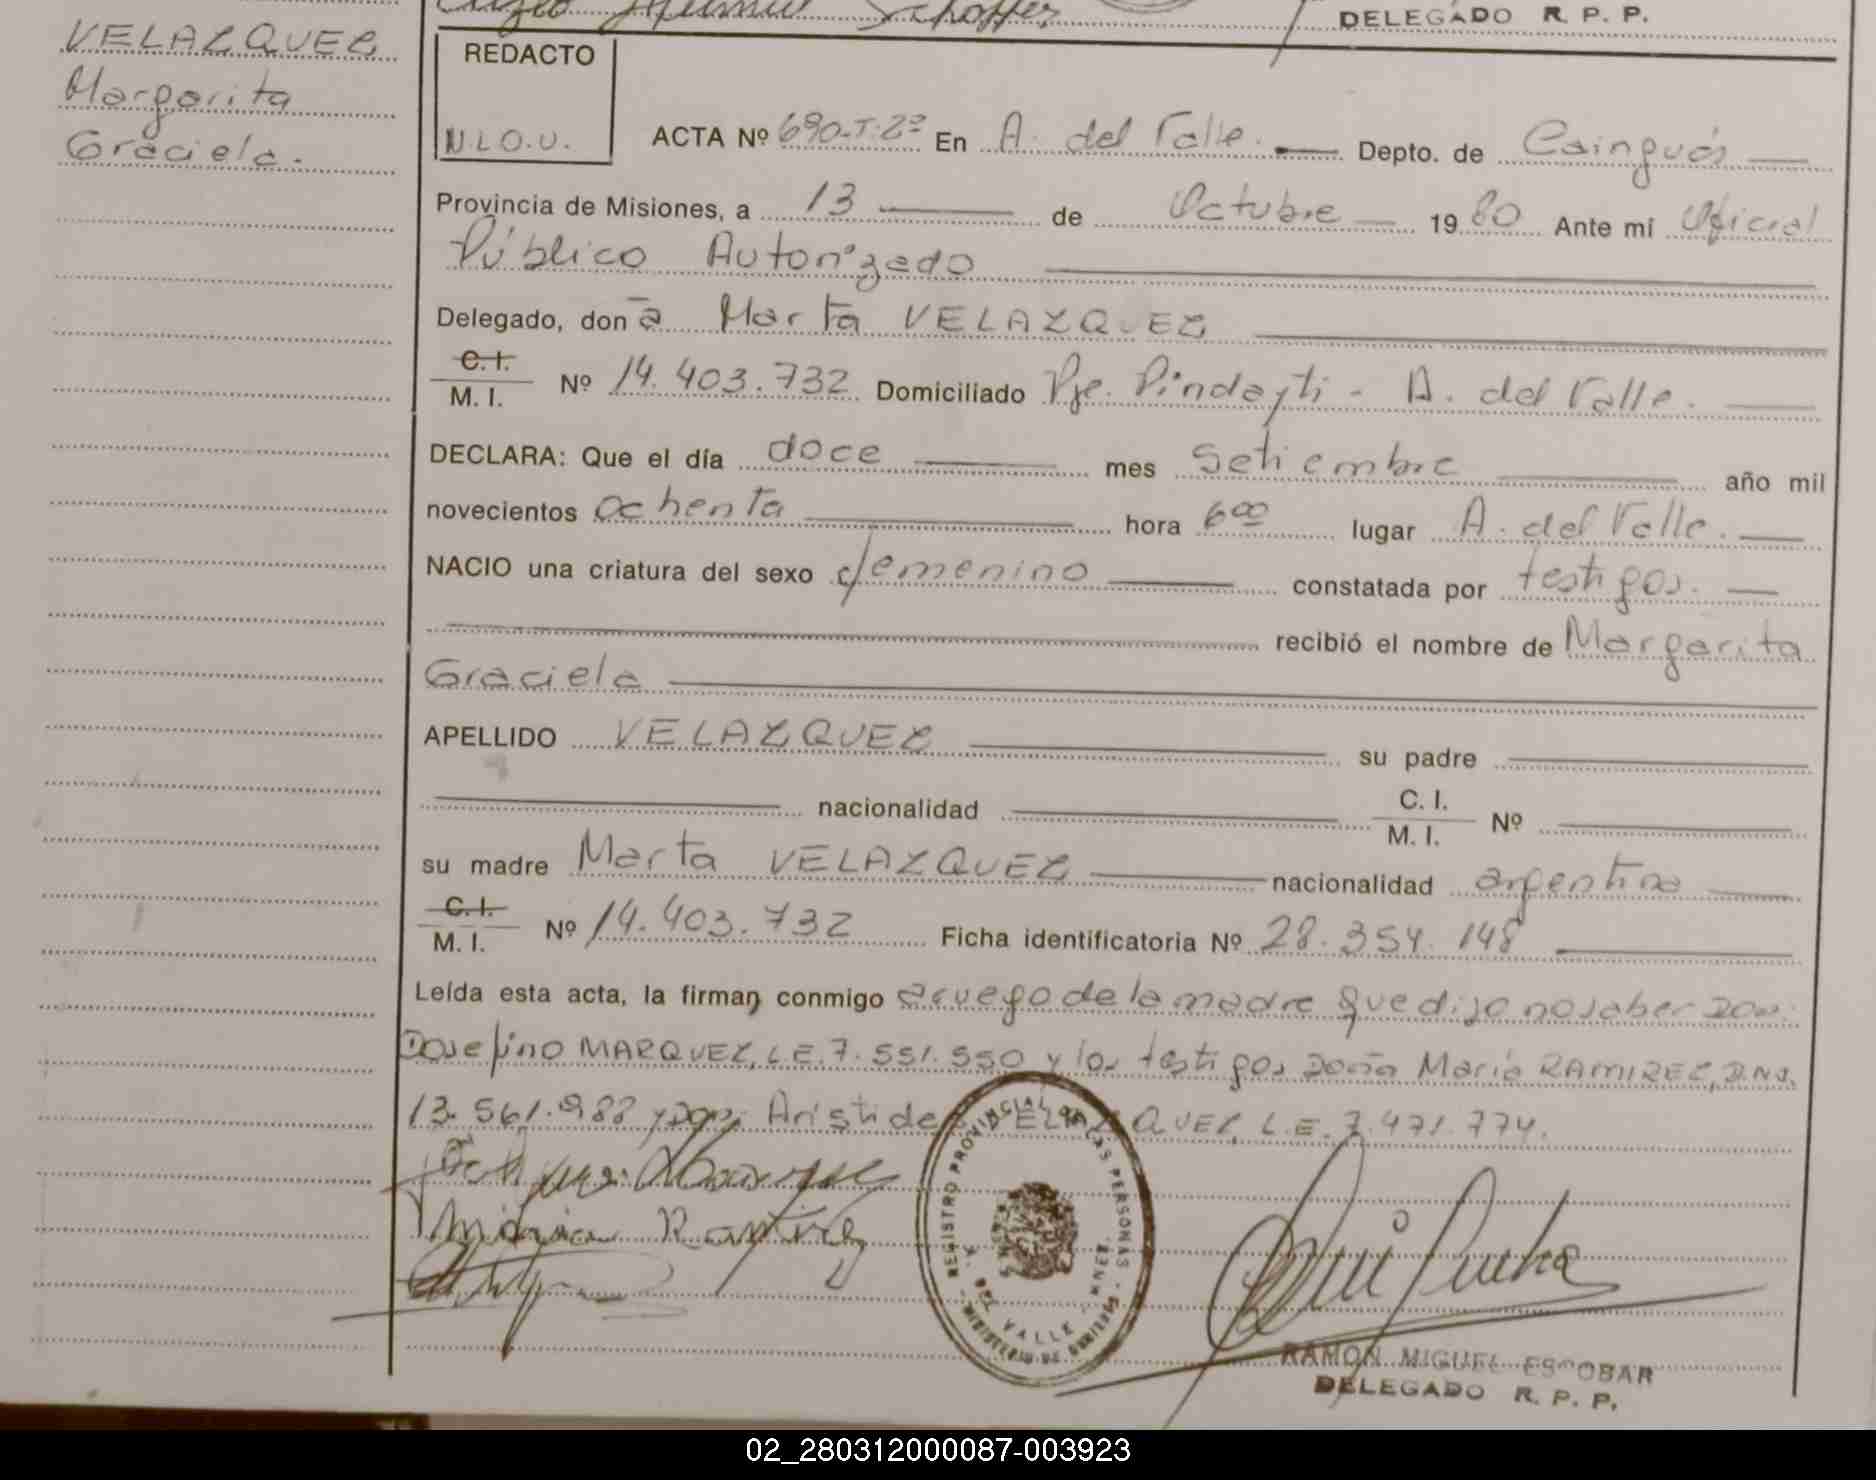 DELEGADO R. P. P.
VELAZQUEZ
Margarita
Graciela.
REDACTO
N.L.O.U.
ACTA Nº 690-T:2º En A. del Valle. Depto. de Cainguás
Provincia de Misiones, a 13 de Octubre 1980 Ante mí Oficial
Público Autorizado
Delegado, don a Marta VELAZQUEZ
C.I. M. I. Nº 14.403.732 Domiciliado Pje. Pindayti - A. del Valle.
DECLARA: Que el día doce mes Setiembre año mil
novecientos ochenta hora 6 00 lugar A. del Valle.
NACIO una criatura del sexo femenino constatada por testigos.
recibió el nombre de Margarita
Graciela
APELLIDO VELAZQUEZ su padre
nacionalidad C. I. M. I. Nº
su madre Marta VELAZQUEZ nacionalidad argentina
C.I. M. I. Nº 14.403.732 Ficha identificatoria Nº 28.354.148
Leída esta acta, la firman conmigo a ruego de la madre que dijo no saber Don:
Josefino MARQUEZ, L.E. 7.551.550 y los testigos Doña María RAMIREZ, D.N.I.
13.561.988 y Don: Arístide VELAZQUEZ, L.E. 7.471.774.
REGISTRO PROVINCIAL DE LAS PERSONAS
VALLE
RAMON MIGUEL ESCOBAR
DELEGADO R. P. P.
02_280312000087-003923